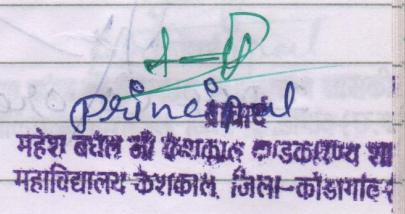 principal
प्राचार्य
महेश बघेल माँ केशकाल दण्डकारण्य शा
महाविद्यालय केशकाल, जिला-कोंडागांव